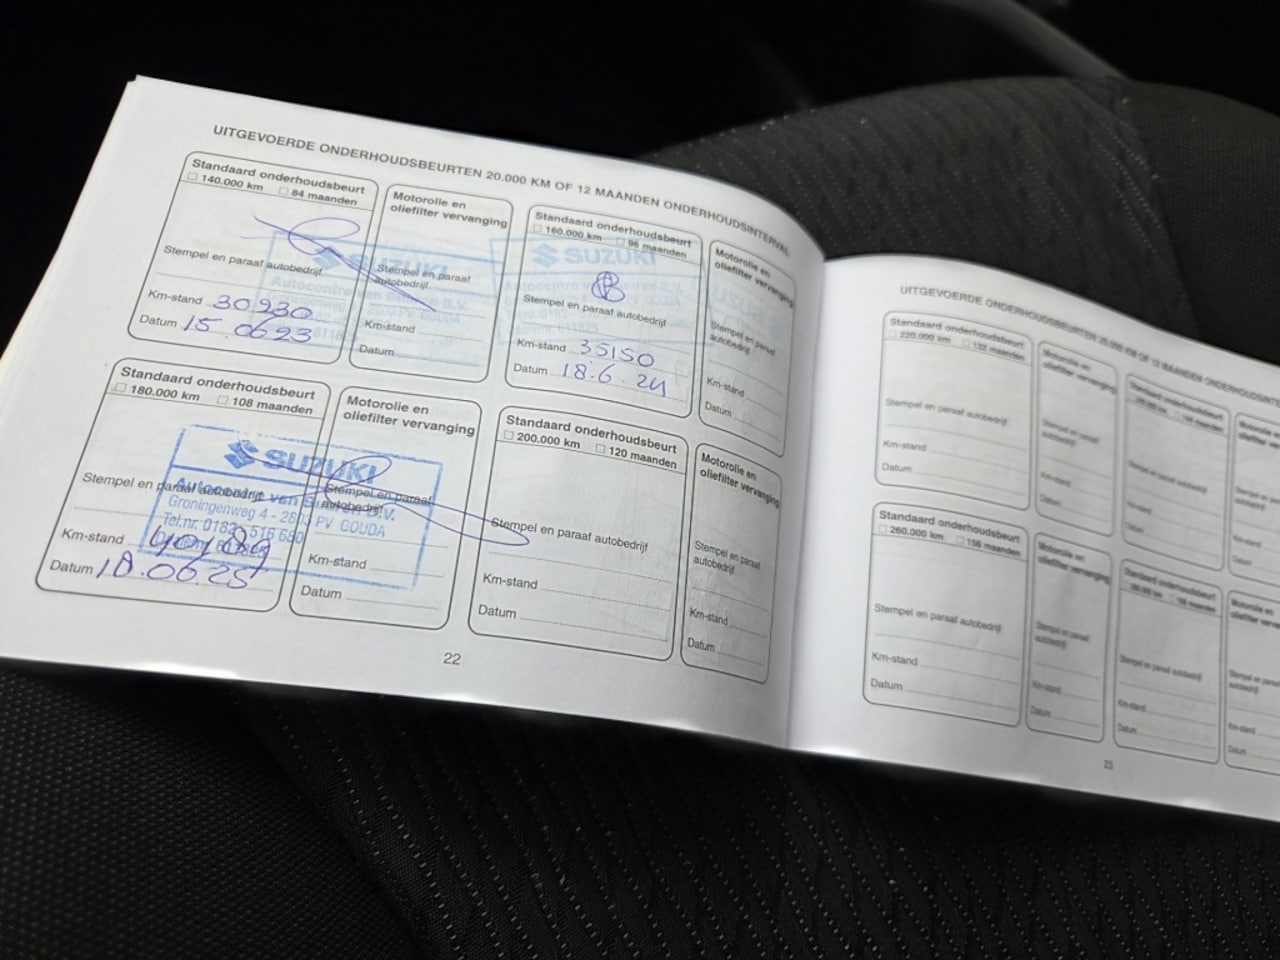 UITGEVOERDE ONDERHOUDSBEURTEN 20.000 KM OF 12 MAANDEN ONDERHOUDSINTERVAL
Standaard onderhoudsbeurt
140.000 km 84 maanden
Stempel en paraaf autobedrijf
Km-stand 30930
Datum 15.0623
Motorolie en
oliefilter vervanging
SUZUKI
Stempel en paraaf
autobedrijf
Km-stand
Datum
Standaard onderhoudsbeurt
160.000 km 96 maanden
SUZUKI
Stempel en paraaf autobedrijf
Km-stand 35150
Datum 18.6.24
Motorolie en
oliefilter vervanging
Stempel en paraaf
autobedrijf
Km-stand
Datum
Standaard onderhoudsbeurt
180.000 km 108 maanden
SUZUKI
Stempel en paraaf autobedrijf
Autocentre van
Groningenweg 4 - 2803 PV GOUDA
Tel.nr. 0182 - 516 680
Km-stand
Datum 10.06.25
Motorolie en
oliefilter vervanging
Stempel en paraaf
autobedrijf
Km-stand
Datum
Standaard onderhoudsbeurt
200.000 km 120 maanden
Stempel en paraaf autobedrijf
Km-stand
Datum
Motorolie en
oliefilter vervanging
Stempel en paraaf
autobedrijf
Km-stand
Datum
22
UITGEVOERDE ONDERHOUDSBEURTEN 20.000 KM OF 12 MAANDEN
Standaard onderhoudsbeurt
220.000 km 132 maanden
Stempel en paraaf autobedrijf
Km-stand
Datum
Motorolie en
oliefilter vervanging
Stempel en paraaf
autobedrijf
Km-stand
Datum
Standaard onderhoudsbeurt
Stempel en paraaf autobedrijf
Km-stand
Datum
Standaard onderhoudsbeurt
260.000 km 156 maanden
Stempel en paraaf autobedrijf
Km-stand
Datum
Motorolie en
oliefilter vervanging
Stempel en paraaf
autobedrijf
Km-stand
Datum
Standaard onderhoudsbeurt
Stempel en paraaf autobedrijf
Km-stand
Datum
23